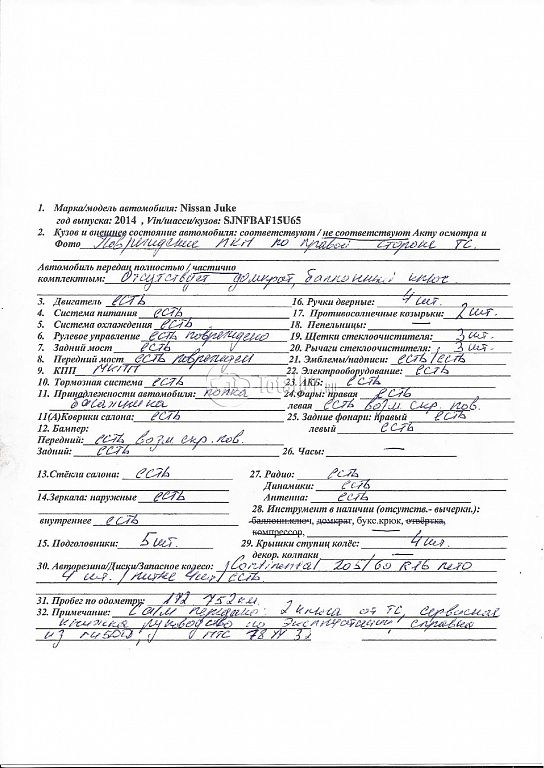 1. Марка/модель автомобиля: Nissan Juke
год выпуска: 2014 , Vin/шасси/кузов: SJNFBAF15U65
2. Кузов и внешнее состояние автомобиля: соответствуют / не соответствуют Акту осмотра и
Фото Повреждение ЛКП по правой стороне ТС.
Автомобиль передан полностью / частично
комплектным: Отсутствует домкрат, баллонный ключ
3. Двигатель есть
4. Система питания есть
5. Система охлаждения есть
6. Рулевое управление есть повреждено
7. Задний мост есть
8. Передний мост есть поврежден
9. КПП МКПП
10. Тормозная система есть
11. Принадлежности автомобиля: полка
багажника
11(А)Коврики салона: есть
12. Бампер:
Передний: есть возм скр. пов.
Задний: есть
13.Стёкла салона: есть
14.Зеркала: наружные есть
внутреннее есть
15. Подголовники: 5 шт.
16. Ручки дверные: 4 шт.
17. Противосолнечные козырьки: 2 шт.
18. Пепельницы: —
19. Щетки стеклоочистителя: 3 шт.
20. Рычаги стеклоочистителя: 3 шт.
21. Эмблемы/надписи: есть/есть
22. Электрооборудование: есть
23. АКБ: есть
24.Фары: правая есть
левая есть возм скр. пов.
25. Задние фонари: правый есть
левый есть
26. Часы: —
27. Радио: есть
Динамики: есть
Антенна: есть
28. Инструмент в наличии (отсутств.- вычеркн.):
баллонн.ключ, домкрат, букс.крюк, отвёртка,
компрессор, —
29. Крышки ступиц колёс: 4 шт.
декор. колпаки —
30. Авторезина/Диски/Запасное колесо: Continental 205/60 R16 лето
4 шт. / литые 4шт/ есть
31. Пробег по одометру: 172 752 км.
32. Примечание: С а/м передано: 2 ключа от ТС, сервисная
книжка, руководство по эксплуатации, справка
из ГИБДД, ПТС 78